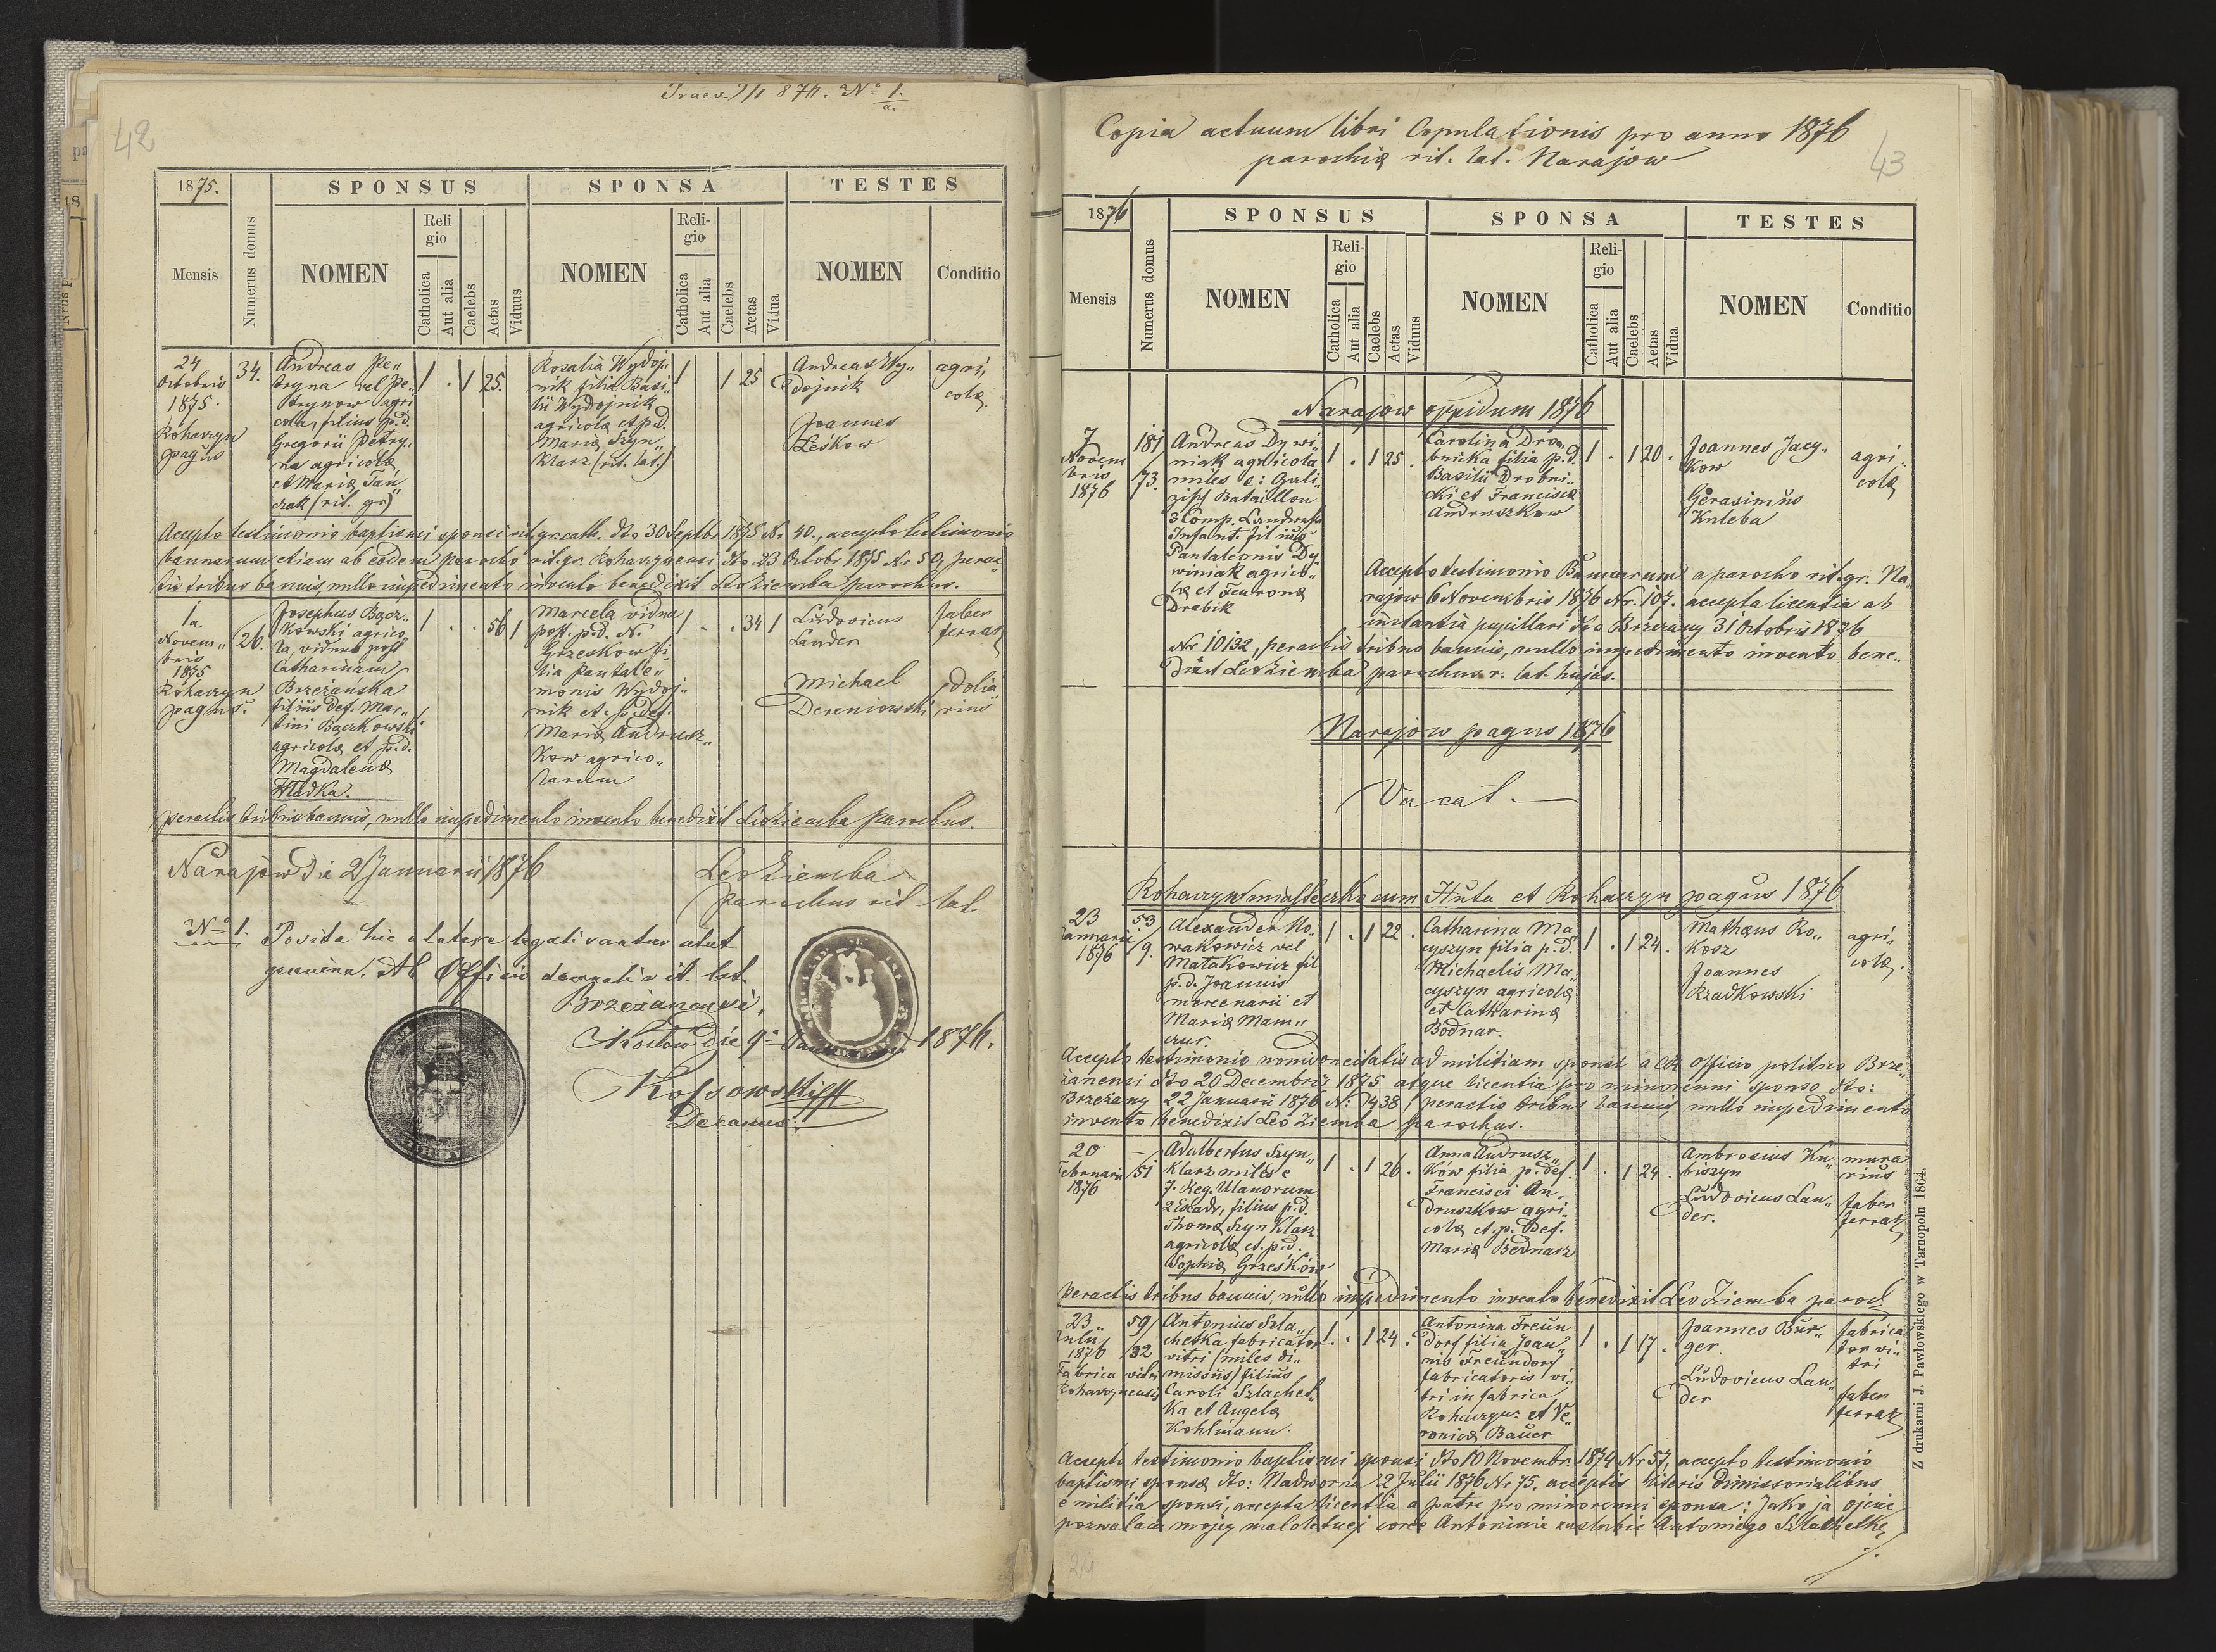 Praes. 9/1 876. Nº 1.
a.
42
1875.
SPONSUS
SPONSA
TESTES
Mensis
Numerus domus
NOMEN
Religio
Catholica
Aut alia
Caelebs
Aetas
Viduus
NOMEN
Religio
Catholica
Aut alia
Caelebs
Aetas
Vidua
NOMEN
Conditio
24
Octobris
1875.
Rohaczyn
pagus
34.
Andreas Pe„
tryna vel Pe„
trynow agri
cola, filius p.d.
Gregorii Petry„
na agricolæ
et Mariæ
czak (rit. gr)
1 . 1 25.
Rosalia Wydoj„
nik filia Basi„
lii Wydojnik
agricolæ et p.d.
Mariæ Szyn„
Klarz (rit. lat.)
1 1 25
Andreas Wy„
dojnik
Joannes
Leskow
agri„
colæ.
Accepto testimonio baptismi sponsi rit. gr. cath. dto 30 Septbr 1875 Nr. 40., accepto testimonio
bannorum etiam ab eodem parocho rit. gr. Rohaczynensi dto 23 Octobr 1875 Nr 50, perac„
tis tribus bannis, nullo impedimento invento benedixit Leo Ziemba parochus.
1a.
Novem„
bris
1875
Rohaczyn
pagus.
26.
Josephus Bącz„
kowski agrico„
la, viduus post
Catharinam
Brzeżańska
filius def. Mar„
tini Bączkowski
agricolæ et p.d.
Magdalenæ
Hładka.
1 . . 56 1
Marcela vidua
post. p.d. N.
Grzeskow fi„
lia Pantale„
monis Wydoj„
nik et. p. def.
Mariæ Andrusz„
Kow agrico„
larum
1 . . 34 1
Ludovicus
Lander
Michael
Dereniowski
faber
ferrar.
dolia
rius
peractis tribus bannis, nullo impedimento invento benedixit Leo Ziemba parochus.
Narajow die 2 Januarii 1876
Leo Ziemba
parochus rit lat.
Nº 1. Posita hic a latere legalisantur utut
genuina. Ab Officio decanali rit. lat.
Brzeżanensi,
die 9a 1876.
Kossowski
Decanus.
Copia actuum libri Copulationis pro anno 1876
parochiæ rit. lat. Narajow
43
1876
SPONSUS
SPONSA
TESTES
Mensis
Numerus domus
NOMEN
Religio
Catholica
Aut alia
Caelebs
Aetas
Viduus
NOMEN
Religio
Catholica
Aut alia
Caelebs
Aetas
Vidua
NOMEN
Conditio
Narajow oppidum 1876
7
Novem
bris
1876
181
73.
Andreas Dywi„
niak agricola
miles e: Gali„
zisch Bataillon
3 Comp. Landwehr
Infant. filius
Pantaleonis Dy
winiak agrico„
læ et Feuronæ
Drabik
1 . 1 25 .
Carolina Dro„
bnicka filia p.d.
Basilii Drobni„
cki et Franciscæ
Andruszkow
1 . 1 20 .
Joannes Jacy„
Kow
Gerasimus
Kuleba
agri„
colæ
Accepto testimonio Bannorum a parocho rit. gr. Na„
rajow 6 Novembris 1876 Nr. 107. accepta licentia ab
instantia pupillari dto Brzezany 31 Octobris 1876
Nr 10132, peractis tribus bannis, nullo impedimento invento bene„
dixit Leo Ziemba parochus r. lat. hujas.
Narajow pagus 1876
Vacat.
Rohaczyn miasteczko cum Huta et Rohaczyn pagus 1876
23
Januarii
1876
53
9.
Alexander No„
wakowicz vel
Matakowicz fil
p.d. Joannis
mercenarii et
Mariæ Mam„
czur.
1 . 1 22 .
Catharina Ma„
cyszyn filia p.d.
Michaelis Ma„
cyszyn agricolæ
et Catharinæ
Bodnar.
1 . 1 24.
Mathæus Ko„
Kosz
Joannes
Rzadkowski
agri„
colæ.
Accepto testimonio nonidoneitatis ad militiam sponsi a CR officio politico Brze„
zanensi dto 20 Decembris 1875 atque licentia pro minorenni sponso dto:
Brzeżany 22 Januarii 1876 N: 7438, peractis tribus bannis nullo impedimento
invento benedixit Leo Ziemba parochus.
20
Februarii
1876
51
Adalbertus Szyn„
Klarz miles e
7. Reg. Ulanorum
2 Escadr, filius p.d.
Thomæ Szyn Klarz
agricolæ et. p.d.
Sophiæ Grześków
1 . 1 26 .
Anna Andrusz„
Ków filia p. def.
Francisci An„
druszkow agri„
colæ et. p. def.
Mariæ Bednarz
1 . 1 24 .
Ambrosius Ku„
biszyn
Ludovicus Lan„
der.
mura
rius
faber
ferrar.
Peractis tribus bannis, nullo impedimento invento benedixit Leo Ziemba paroch
23
Julii
1876
Fabrica vitri
Rohaczynensis
59
32
Antonius Szla„
chetka, fabricator
vitri (miles di„
missus) filius
Caroli Szlachet„
Ka et Angelæ
Kohlmann.
1 . 1 24 .
Antonina Freun
dorf filia Joan„
nis Freundorf
fabricatoris vi„
tri in fabrica
Rohaczyn. et Ve„
ronicæ Bauer
1 . 1 17 .
Joannes Bur„
ger
Ludovicus Lan„
der
fabrica
tor vi„
tri
faber
ferrar.
Accepto testimonio baptismi sponsi dto 10 Novembr. 1874 Nr 57, accepto testimonio
baptismi sponsæ dto: Nadworna 2 Julii 1876 Nr 75. acceptis literis dimissorialibus
e militia sponsi, accepta licentia a patre pro minorenni sponsa: Jako ja ojciec
pozwalam mojej małoletniej córce Antoninie zaślubić Antoniego Szlachetkę
./.
24
Z drukarni J. Pawłowskiego w Tarnopolu 1864.